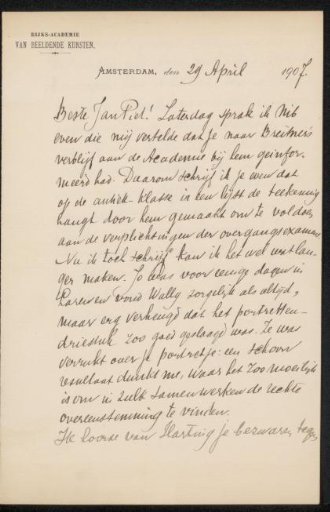 RIJKS-ACADEMIE
VAN BEELDENDE KUNSTEN.
AMSTERDAM, den 29 April 1907.
Beste Jan Piet! Zaterdag sprak ik Nib
even die mij vertelde dat je naar Breitner's
verblijf aan de Academie bij hem geinfor-
meerd had. Daarom schrijf ik je even dat
op de antiek-klasse in een lijst de teekening
hangt door hem gemaakt om te voldoen
aan de verplichtingen der overgangsexamen
Nu ik toch schrijf kan ik het wel wat lan-
ger maken. Jo was voor eenige dagen in
Laren en vond Wally zorgelijk als altijd,
maar erg verheugd dat het portretten-
driestuk zoo goed geslaagd was. Ze was
verrukt over je portretje: een schoon
resultaat dunkt me, waar het zoo moeielijk
is om in zulk samenwerken de rechte
overeenstemming te vinden.
Ik hoorde van Harting je bezwaren tegen